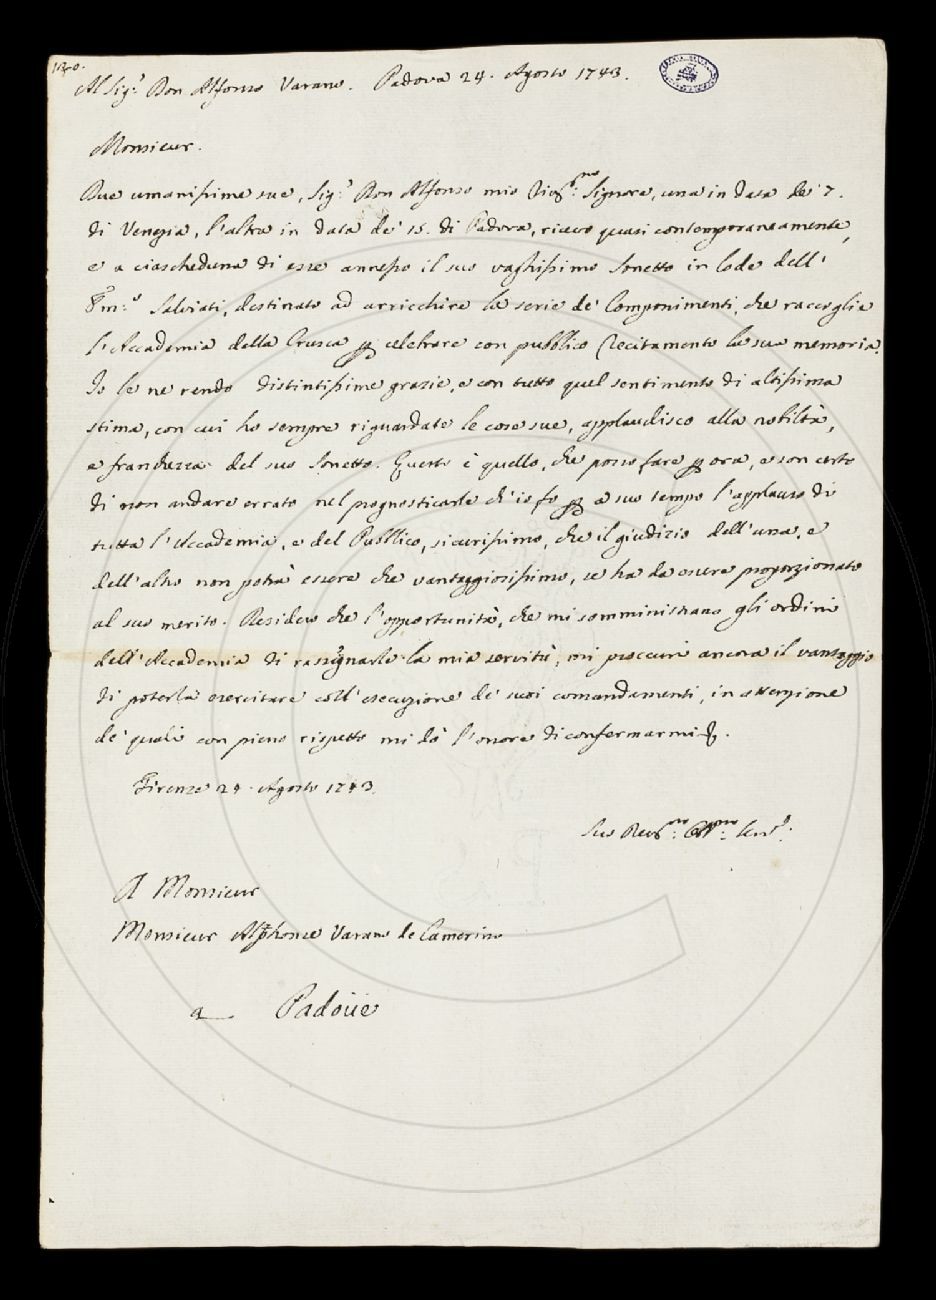 Al Sig.r Don Alfonso Varano. Padova 24. Agosto 1743.
Monsieur.
Due umanissime sue, Sig.r Don Alfonso mio Riv.mo Signore, una in data de' 7.
di Venezia, l'altra in data de' 15. di Padova, ricevo quasi contemporaneamente,
e a ciascheduna di esse annesso il suo vaghissimo Sonetto in lode dell'
Em.o Salviati, destinato ad arricchire la serie de' Componimenti, che raccoglie
l'Accademia della Crusca per celebrare con pubblico Recitamento la sua memoria.
Io le ne rendo distintissime grazie, e con tutto quel sentimento di altissima
stima, con cui ho sempre riguardate le cose sue, applaudisco alla nobiltà,
e franchezza del suo Sonetto. Questo è quello, che posso fare per ora, e son certo
di non andare errato nel prognosticarle ch'io fo per a suo tempo l'applauso di
tutta l'Accademia, e del Pubblico, sicurissimo, che il giudizio dell'una, e
dell'altro non potrà essere che vantaggiosissimo, se ha da essere proporzionato
al suo merito. Desidero che l'opportunità, che mi somministrano gli ordini
dell'Accademia di rassegnarle la mia servitù, mi procuri ancora il vantaggio
di poterla esercitare coll'esecuzione de' suoi comandamenti, in attenzione
de' quali con pieno rispetto mi dò l'onore di confermarmi &.
Firenze 24. Agosto 1743.
A Monsieur
Monsieur Alphonce Varano de Camerino
a Padoüe